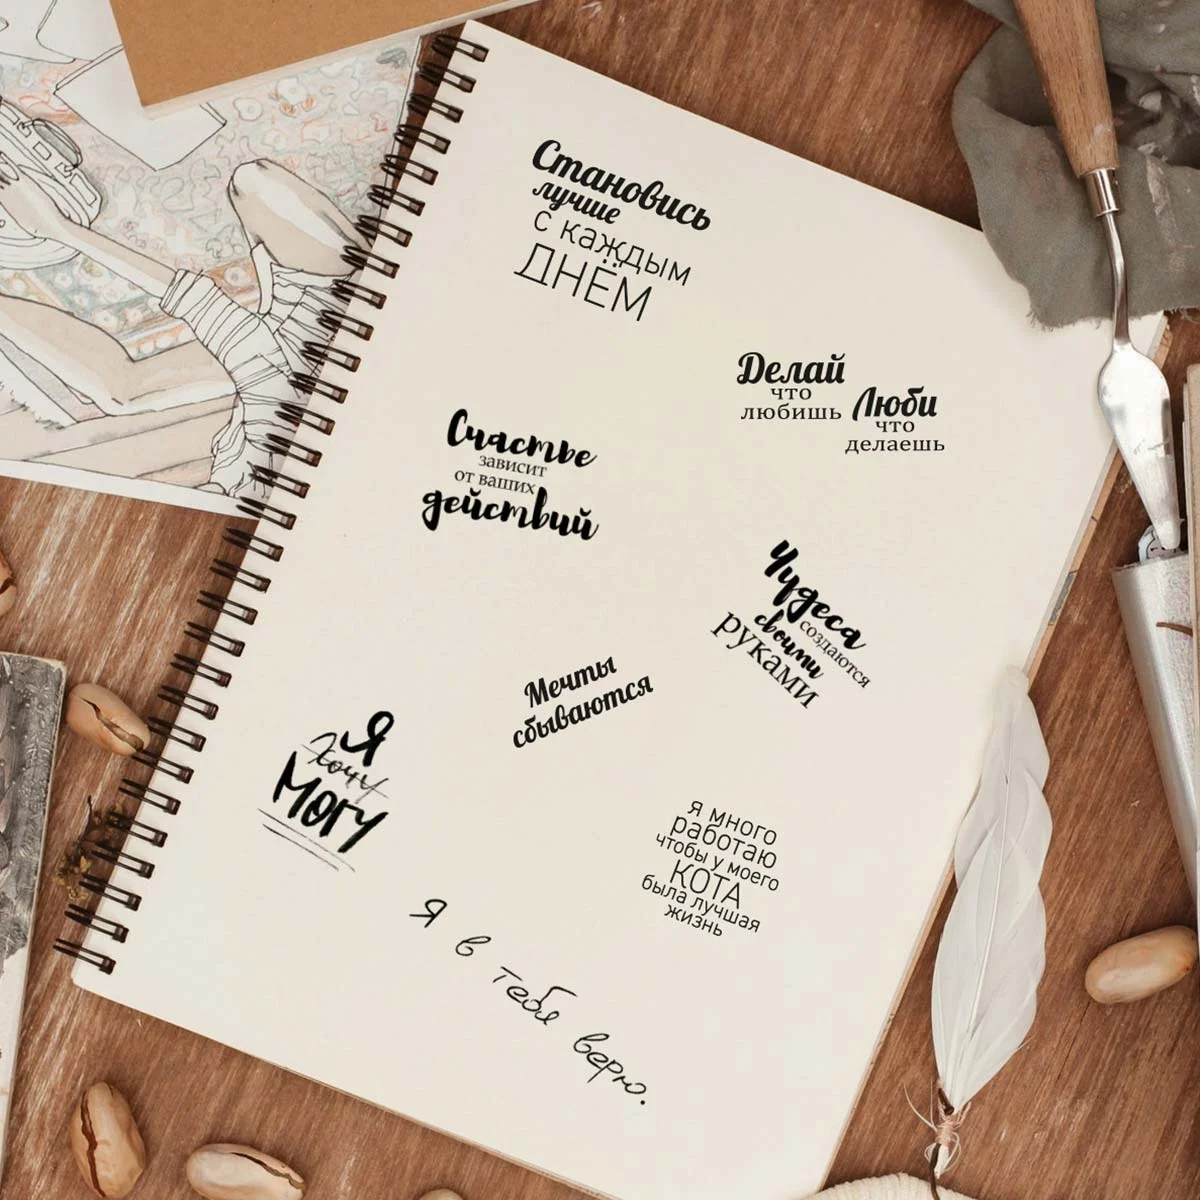 Становись
лучше
с каждым
ДНЁМ
Делай
что
любишь
Люби
что
делаешь
Счастье
зависит
от ваших
действий
Чудеса
создаются
своими
руками
Мечты
сбываются
Я
Хочу
МОГУ
я много
работаю
чтобы у моего
КОТА
была лучшая
жизнь
Я в тебя верю.